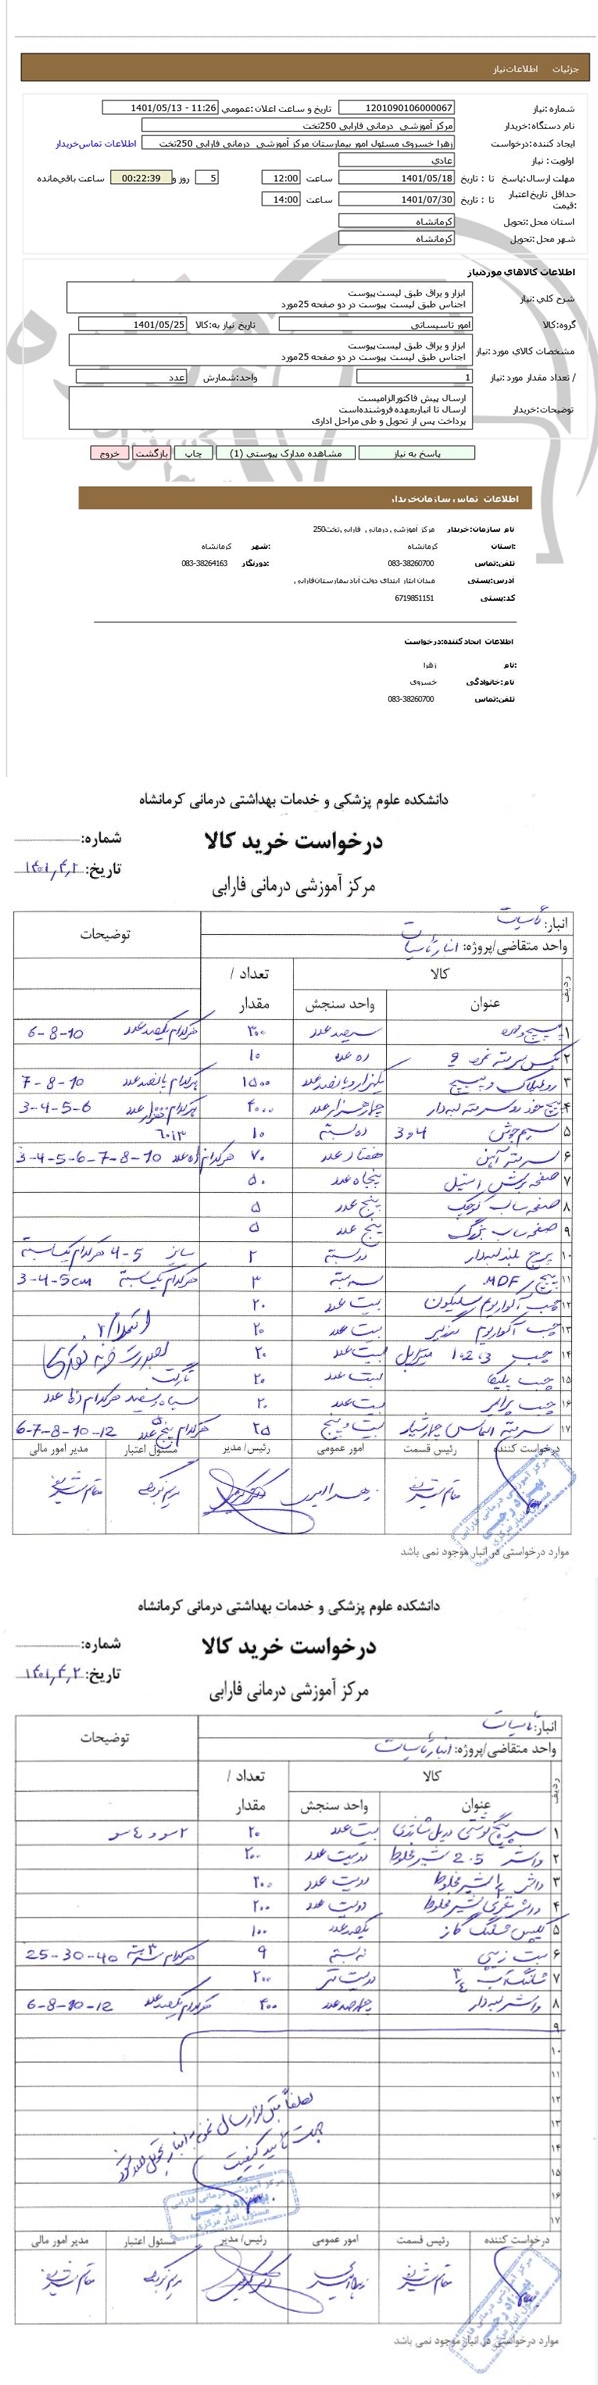 جزئیات اطلاعات نیاز
شماره نیاز: 1201090106000067 تاریخ و ساعت اعلان عمومی: 1401/05/13 - 11:26
نام دستگاه خریدار: مرکز آموزشی درمانی فارابی 250تخت
ایجاد کننده درخواست: زهرا خسروی مسئول امور بیمارستان مرکز آموزشی درمانی فارابی 250تخت اطلاعات تماس خریدار
اولویت نیاز : عادی
مهلت ارسال پاسخ تا : تاریخ 1401/05/18 ساعت 12:00 5 روز و 00:22:39 ساعت باقی مانده
حداقل تاریخ اعتبار قیمت: تا : تاریخ 1401/07/30 ساعت 14:00
استان محل تحویل: کرمانشاه
شهر محل تحویل: کرمانشاه
اطلاعات کالاهای موردنیاز
شرح کلی نیاز: ابزار و یراق طبق لیست پیوست
اجناس طبق لیست پیوست در دو صفحه 25مورد
گروه کالا: امور تاسیساتی تاریخ نیاز به کالا: 1401/05/25
مشخصات کالای مورد نیاز: ابزار و یراق طبق لیست پیوست
اجناس طبق لیست پیوست در دو صفحه 25مورد
/ تعداد مقدار مورد نیاز: 1 واحد شمارش: عدد
توضیحات خریدار: ارسال پیش فاکتورالزامیست
ارسال تا انباربعهده فروشنده است
پرداخت پس از تحویل و طی مراحل اداری
پاسخ به نیاز مشاهده مدارک پیوستی (1) چاپ بازگشت خروج
اطلاعات تماس سازمان خریدار
نام سازمان خریدار: مرکز آموزشی درمانی فارابی 250تخت
استان: کرمانشاه شهر: کرمانشاه
تلفن تماس: 083-38260700 دورنگار: 083-38264163
آدرس پستی: میدان ایثار ابتدای دولت آباد بیمارستان فارابی
کد پستی: 6719851151
اطلاعات ایجاد کننده درخواست:
نام: زهرا
نام خانوادگی: خسروی
تلفن تماس: 083-38260700
دانشکده علوم پزشکی و خدمات بهداشتی درمانی کرمانشاه
درخواست خرید کالا شماره:
مرکز آموزشی درمانی فارابی تاریخ: ۱۴۰۱,۴,۲
انبار: تأسیسات
واحد متقاضی/پروژه: انبار تأسیسات توضیحات
ردیف کالا تعداد / مقدار
عنوان واحد سنجش
۱ پیچ و مهره سیصد عدد ۳۰۰ هرکدام یکصد عدد 6-8-10
۲ ده عدد ۱۰
۳ رولپلاک و پیچ یکهزار و پانصد عدد ۱۵۰۰ هرکدام پانصد عدد 7-8-10
۴ پیچ خود رو سرمته لبه دار چهار هزار عدد ۴۰۰۰ هرکدام هزار عدد 3-4-5-6
۵ سیم جوش 3و4 ده بسته ۱۰ ۶۰۱۳
۶ سرمته آهن هفتاد عدد ۷۰ هرکدام ده عدد 3-4-5-6-7-8-10
۷ صفحه برش استیل پنجاه عدد ۵۰
۸ صفحه ساب کوچک پنج عدد ۵
۹ صفحه ساب بزرگ پنج عدد ۵
۱۰ پرچ بلند لبه دار دو بسته ۲ سایز 5-4 هرکدام یک بسته
۱۱ پیچ MDF سه بسته ۳ هرکدام یک بسته 3-4-5cm
۱۲ چسب آکواریوم سیلیکون بیست عدد ۲۰
۱۳ چسب آکواریوم بیست عدد ۲۰
۱۴ چسب 1.2.3 بیست عدد ۲۰
۱۵ چسب پلیکا بیست عدد ۲۰ تانگیت
۱۶ چسب برق بیست عدد ۲۰ سیاه و سفید هرکدام ده عدد
۱۷ سرمته الماس چهارشیار بیست و پنج ۲۵ هرکدام پنج عدد 6-7-8-10-12
درخواست کننده رئیس قسمت امور عمومی رئیس/مدیر مسئول اعتبار مدیر امور مالی
مرکز آموزشی درمانی فارابی
بهزاد رجبی
مسئول انبار مرکزی
موارد درخواستی در انبار موجود نمی باشد
دانشکده علوم پزشکی و خدمات بهداشتی درمانی کرمانشاه
درخواست خرید کالا شماره:
مرکز آموزشی درمانی فارابی تاریخ: ۱۴۰۱,۴,۲
انبار: تأسیسات
واحد متقاضی/پروژه: انبار تأسیسات توضیحات
ردیف کالا تعداد / مقدار
عنوان واحد سنجش
۱ سرپیچ گوشتی دریل شارژی بیست عدد ۲۰ ۲ سو و ۴ سو
۲ واشر 2.5 شیر مخلوط دویست عدد ۲۰۰
۳ واشر شیر مخلوط دویست عدد ۲۰۰
۴ واشر شیر مخلوط دویست عدد ۲۰۰
۵ کلیپس شلنگ گاز یکصد عدد ۱۰۰
۶ بست زیپی نه بسته ۹ هرکدام ۳ بسته 25-30-40
۷ شلنگ آب ۳/۴ دویست متر ۲۰۰
۸ واشر لبه دار چهارصد عدد ۴۰۰ هرکدام یکصد عدد 6-8-10-12
۹
۱۰
۱۱
۱۲
۱۳
۱۴
۱۵
۱۶
۱۷
لطفاً قبل از ارسال نمونه به انبار تحویل گردد
جهت تایید کیفیت
مرکز آموزشی درمانی فارابی
بهزاد رجبی
مسئول انبار مرکزی
درخواست کننده رئیس قسمت امور عمومی رئیس/مدیر مسئول اعتبار مدیر امور مالی
مرکز آموزشی درمانی فارابی
بهزاد رجبی
مسئول انبار مرکزی
موارد درخواستی در انبار موجود نمی باشد